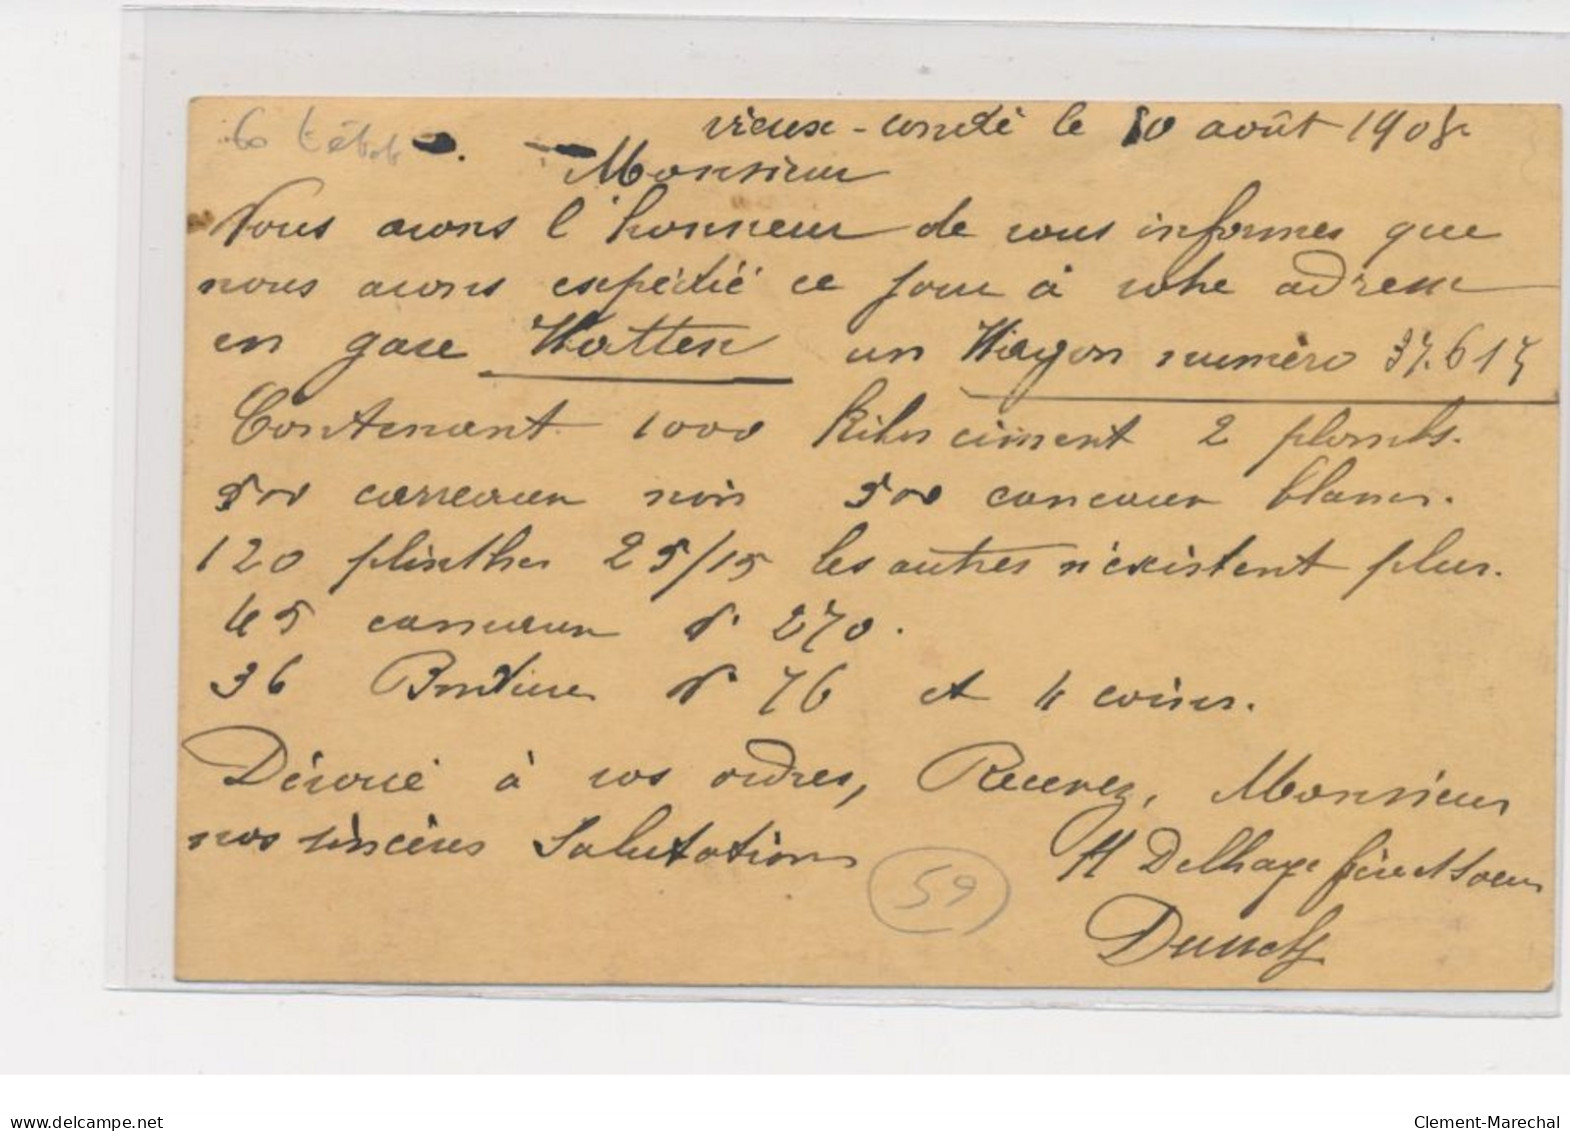 vieux-condé le 10 août 1908
Monsieur
Nous avons l'honneur de vous informer que
nous avons expédié ce jour à votre adresse
en gare Watten un Wagon numéro 37.617
Contenant 1000 kilos ciment 2 plombs.
500 carreaux noir 500 carreaux blancs.
120 plinthes 25/15 les autres n'existent plus.
45 carreaux n° 270.
36 Bordures n° 76 et 4 coins.
Dévoué à vos ordres, Recevez, Monsieur
nos sincères Salutations
H Delhaye frère et soeur
59
delcampe.net
Clement-Marechal